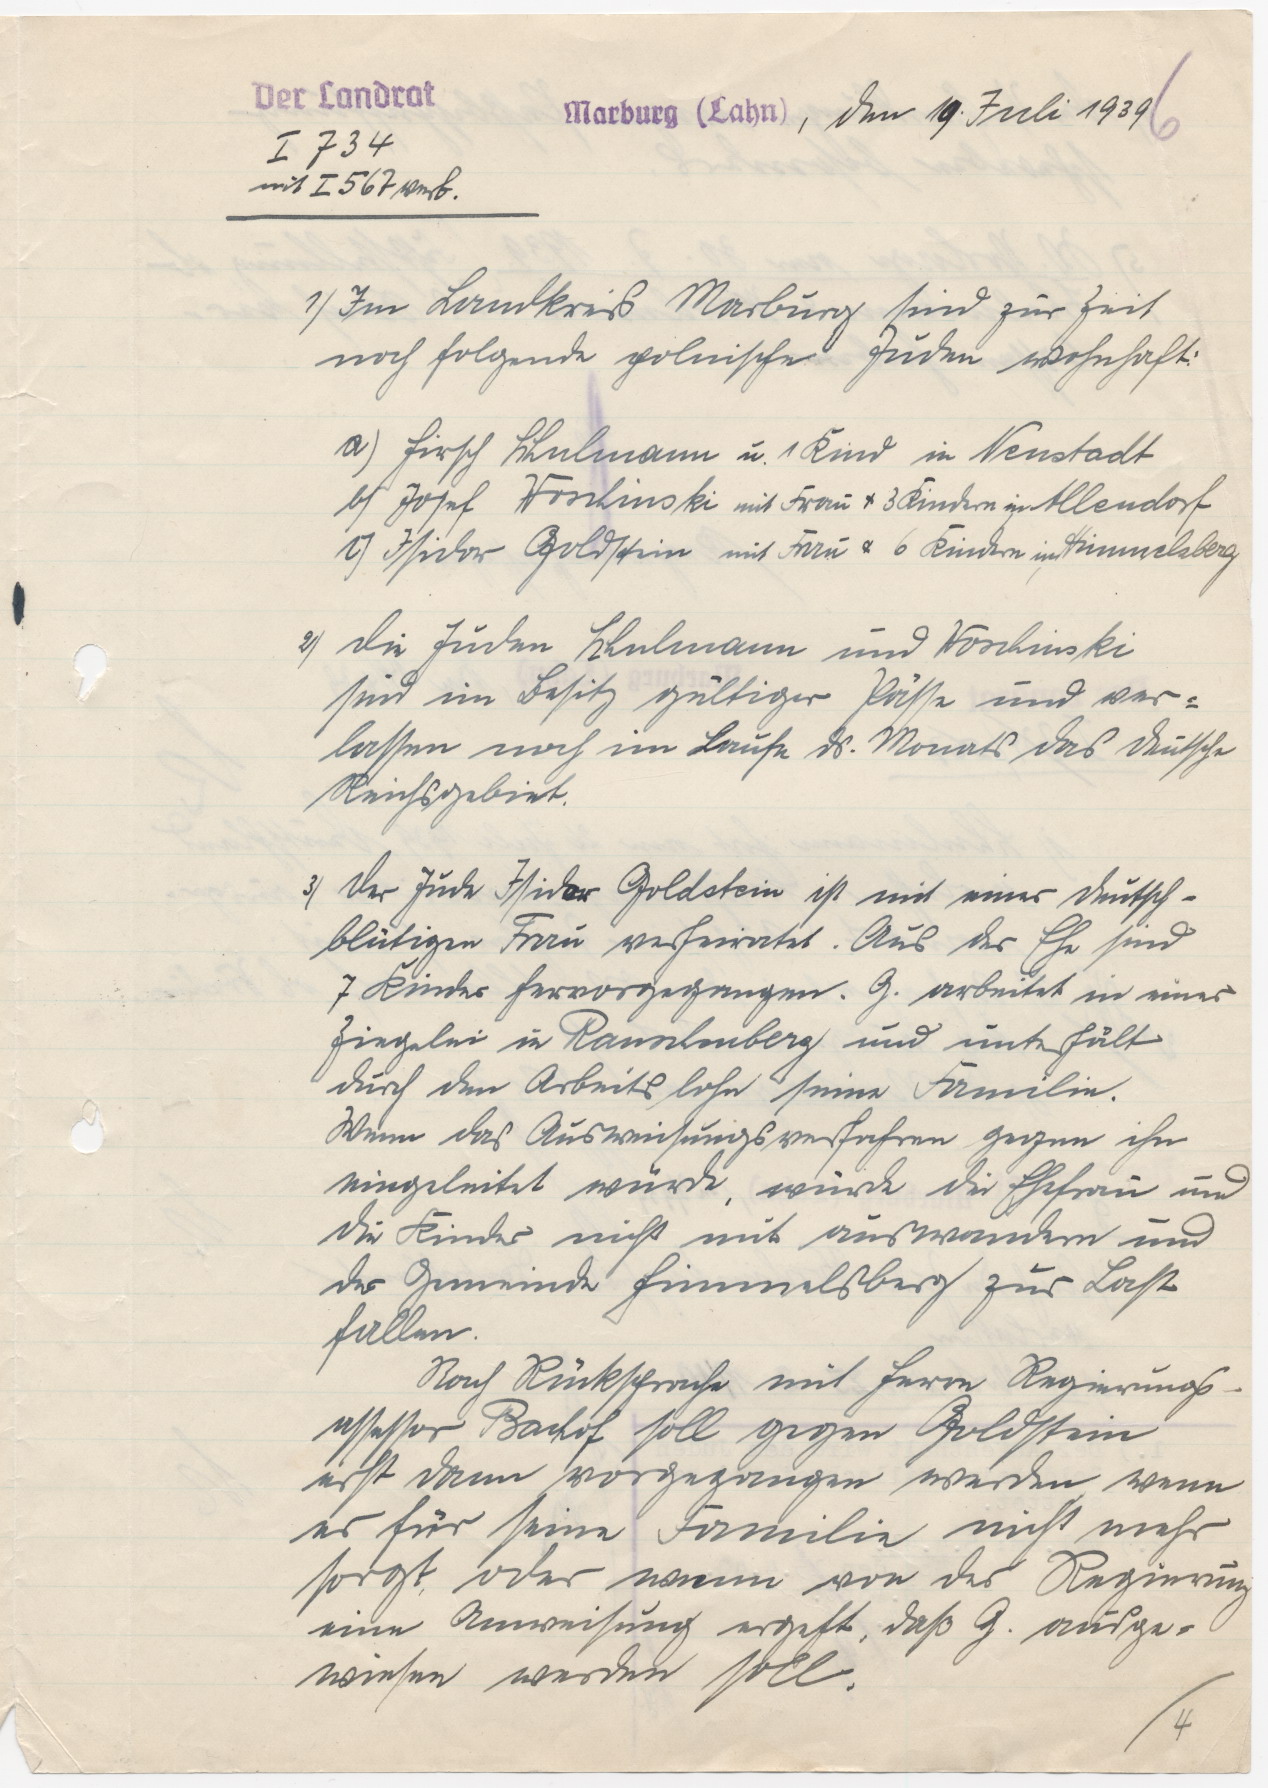 Der Landrat
Marburg (Lahn), den 19. Juli 1939
6
I 734
mit I 567 verb.
1) Im Landkreis Marburg sind zur Zeit
noch folgende polnische Juden wohnhaft:
a) Hirsch Schulmann u. 1 Kind in Neustadt
b) Josef Woschinski mit Frau & 3 Kindern in Allendorf
c) Isidor Goldstein mit Frau & 6 Kindern in Himmelsberg
2) Die Juden Schulmann und Woschinski
sind im Besitz gültiger Pässe und ver=
lassen noch im Laufe ds. Monats das deutsche
Reichsgebiet.
3) Der Jude Isidor Goldstein ist mit einer deutsch-
blütigen Frau verheiratet. Aus der Ehe sind
7 Kinder hervorgegangen. G. arbeitet in einer
Ziegelei in Rauschenberg und unterhält
durch den Arbeitslohn seine Familie.
Wenn das Ausweisungsverfahren gegen ihn
eingeleitet würde, würde die Ehefrau und
die Kinder nicht mit auswandern und
der Gemeinde Himmelsberg zur Last
fallen.
Nach Rücksprache mit Herrn Regierungs-
assessor soll gegen Goldstein
erst dann vorgegangen werden, wenn
er für seine Familie nicht mehr
sorgt, oder wenn von der Regierung
eine Anweisung ergeht, daß G. ausge-
wiesen werden soll.
/4